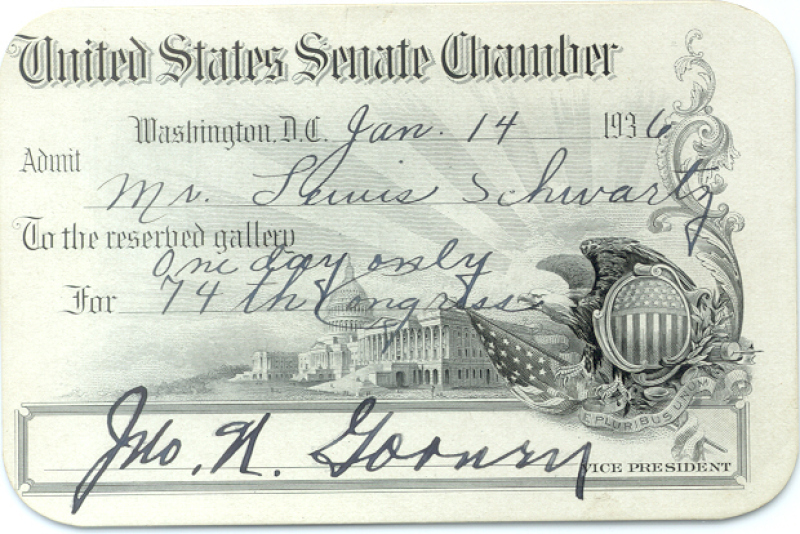 United States Senate Chamber
Washington, D.C. Jan. 14 1936
Admit
Mr. Lewis Schwartz
To the reserved gallery
One day only
For 74th Congress
E PLURIBUS UNUM
Jno. N. Garner
VICE PRESIDENT